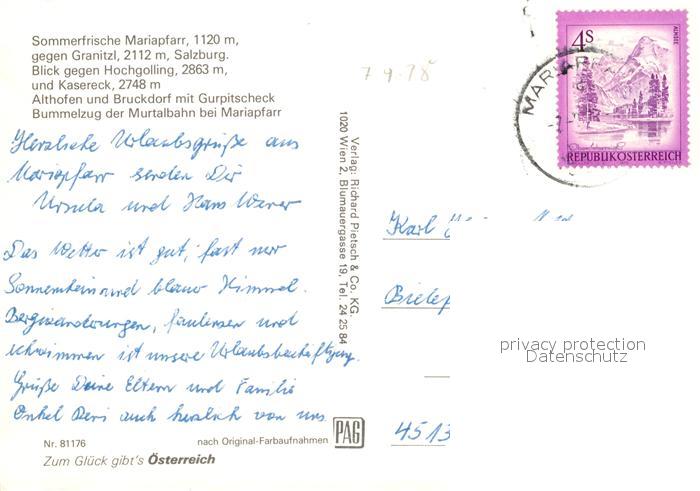 Sommerfrische Mariapfarr, 1120 m,
gegen Granitzl, 2112 m, Salzburg.
Blick gegen Hochgolling, 2863 m,
und Kasereck, 2748 m
Althofen und Bruckdorf mit Gurpitscheck
Bummelzug der Murtalbahn bei Mariapfarr
7.9.78
Herzliche Urlaubsgrüße aus
Mariapfarr senden Dir
Ursula und Hans Werner
Das Wetter ist gut, fast nur
Sonnenschein und blauer Himmel.
Bergwanderungen, faulenzen und
schwimmen ist unsere Urlaubsbeschäftigung.
Grüße Deine Eltern und Familie
Onkel auch herzlich von uns
Nr. 81176
nach Original-Farbaufnahmen
PAG
Zum Glück gibt's Österreich
Verlag: Richard Pietsch & Co. KG.
1020 Wien 2, Blumauergasse 19, Tel. 24 25 84
4S
ALMSEE
REPUBLIK ÖSTERREICH
MARIAPFARR
Karl
4513
privacy protection
Datenschutz